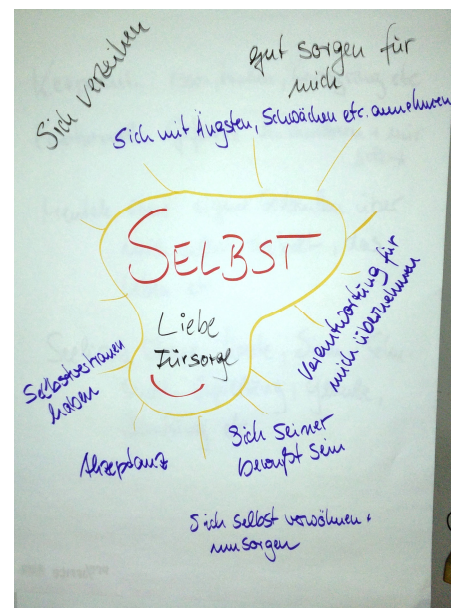 Sich verzeihen
gut sorgen für
mich
Sich mit Ängsten, Schwächen etc. annehmen
SELBST
Liebe
Fürsorge
Verantwortung für
mich übernehmen
Selbstvertrauen
haben
Akzeptanz
Sich Seiner
bewußt sein
Sich selbst verwöhnen +
umsorgen